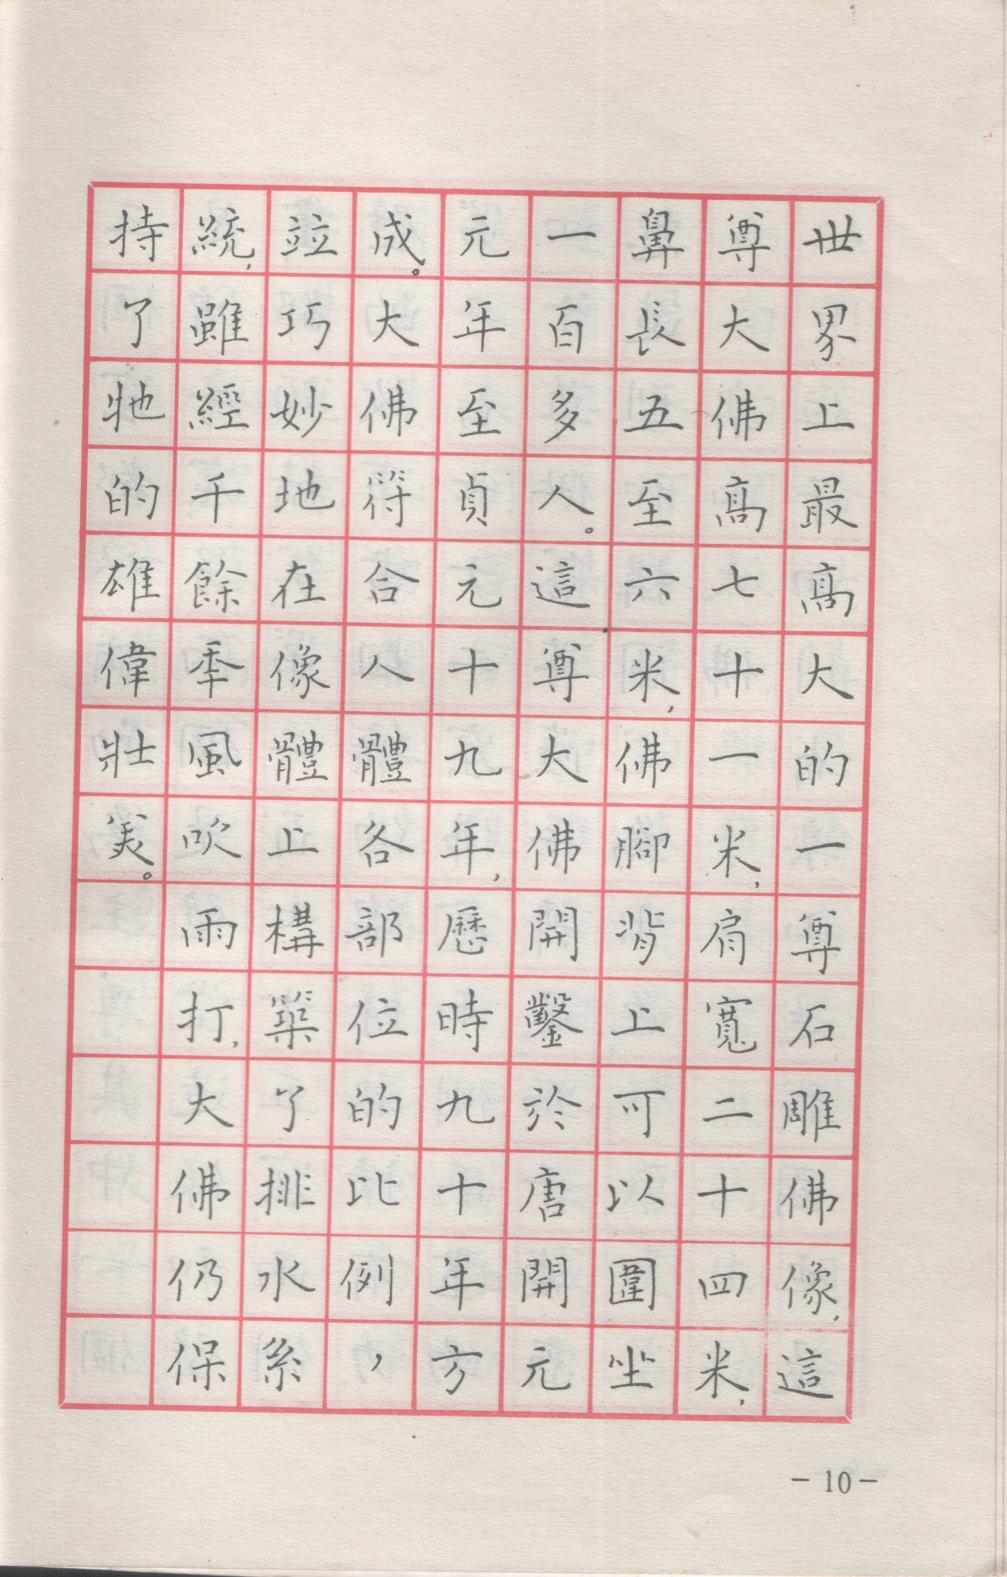 世界上最高大的一尊石雕佛像,這
尊大佛高七十一米,肩寬二十四米,
鼻長五至六米,佛腳背上可以圍坐
一百多人。這尊大佛開鑿於唐開元
元年至貞元十九年,歷時九十年方
成。大佛符合人體各部位的比例，
竝巧妙地在像體上構築了排水系
統,雖經千餘年風吹雨打,大佛仍保
持了牠的雄偉壯美。
-10-